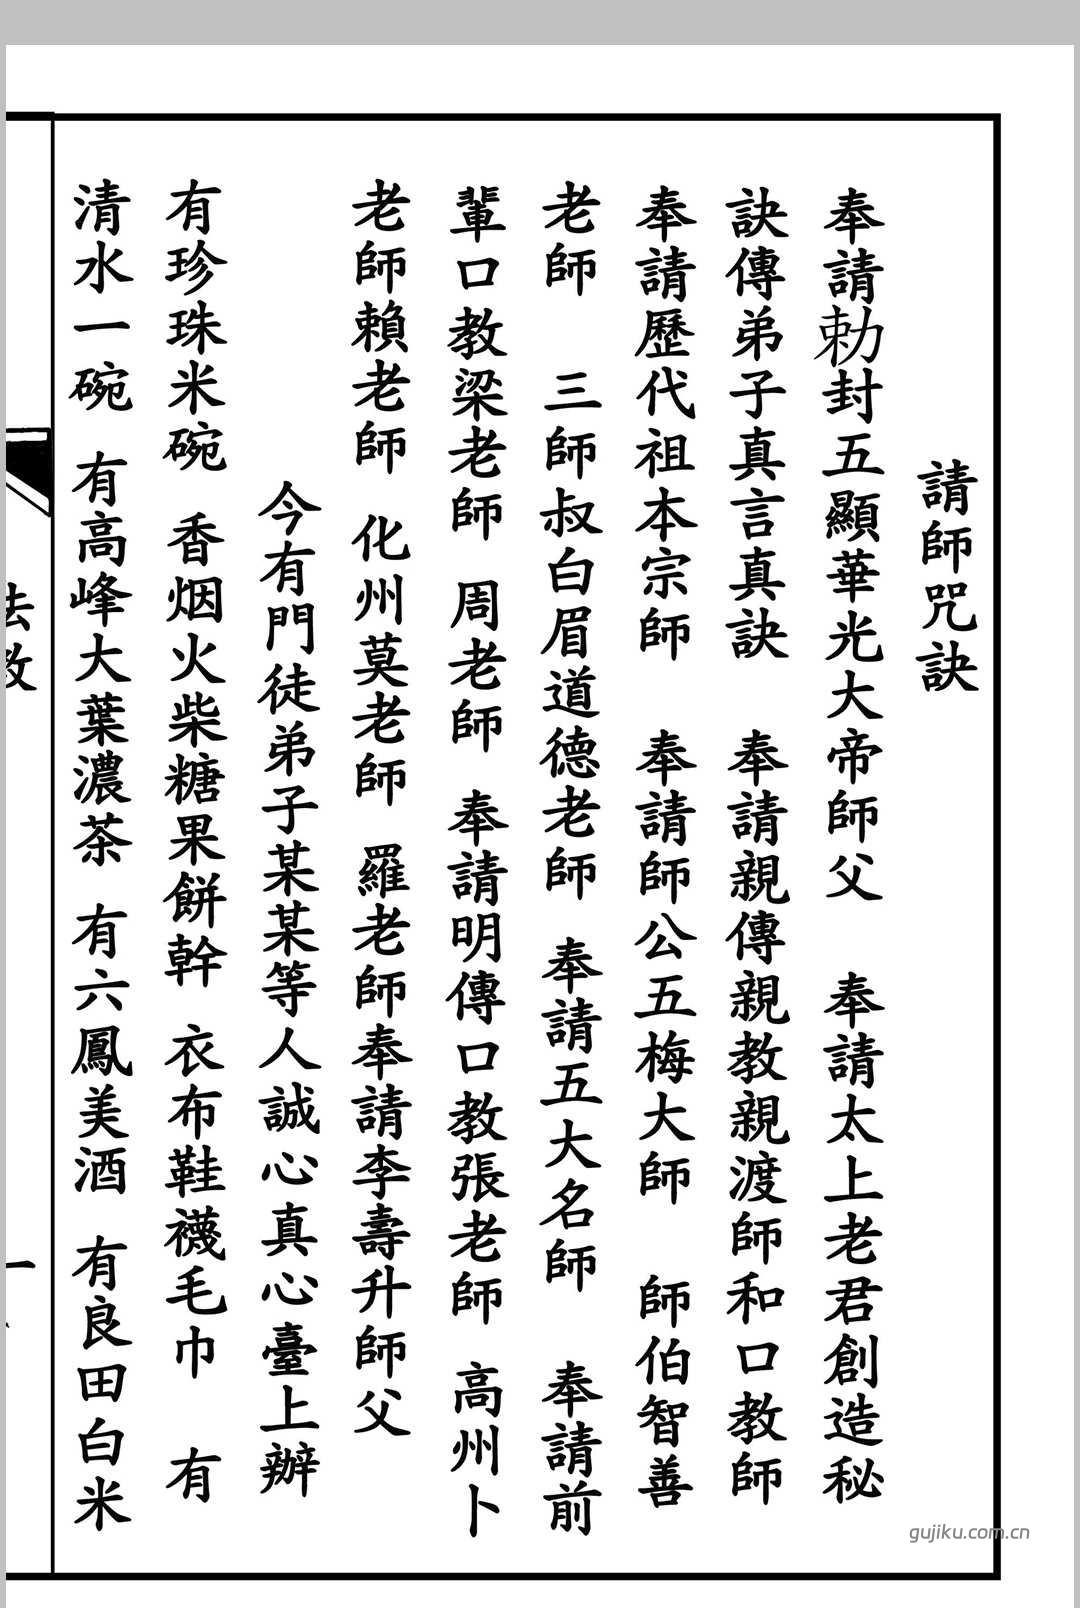 請師咒訣
奉請勅封五顯華光大帝師父　奉請太上老君創造秘
訣傳弟子真言真訣　奉請親傳親教親渡師和口教師
奉請歷代祖本宗師　奉請師公五梅大師　師伯智善
老師　三師叔白眉道德老師　奉請五大名師　奉請前
輩口教梁老師　周老師　奉請明傳口教張老師　高州卜
老師賴老師　化州莫老師　羅老師奉請李壽升師父
今有門徒弟子某某等人誠心真心臺上辦
有珍珠米碗　香烟火柴糖果餅幹　衣布鞋襪毛巾　有
清水一碗　有高峰大葉濃茶　有六鳳美酒　有良田白米
gujiku.com.cn